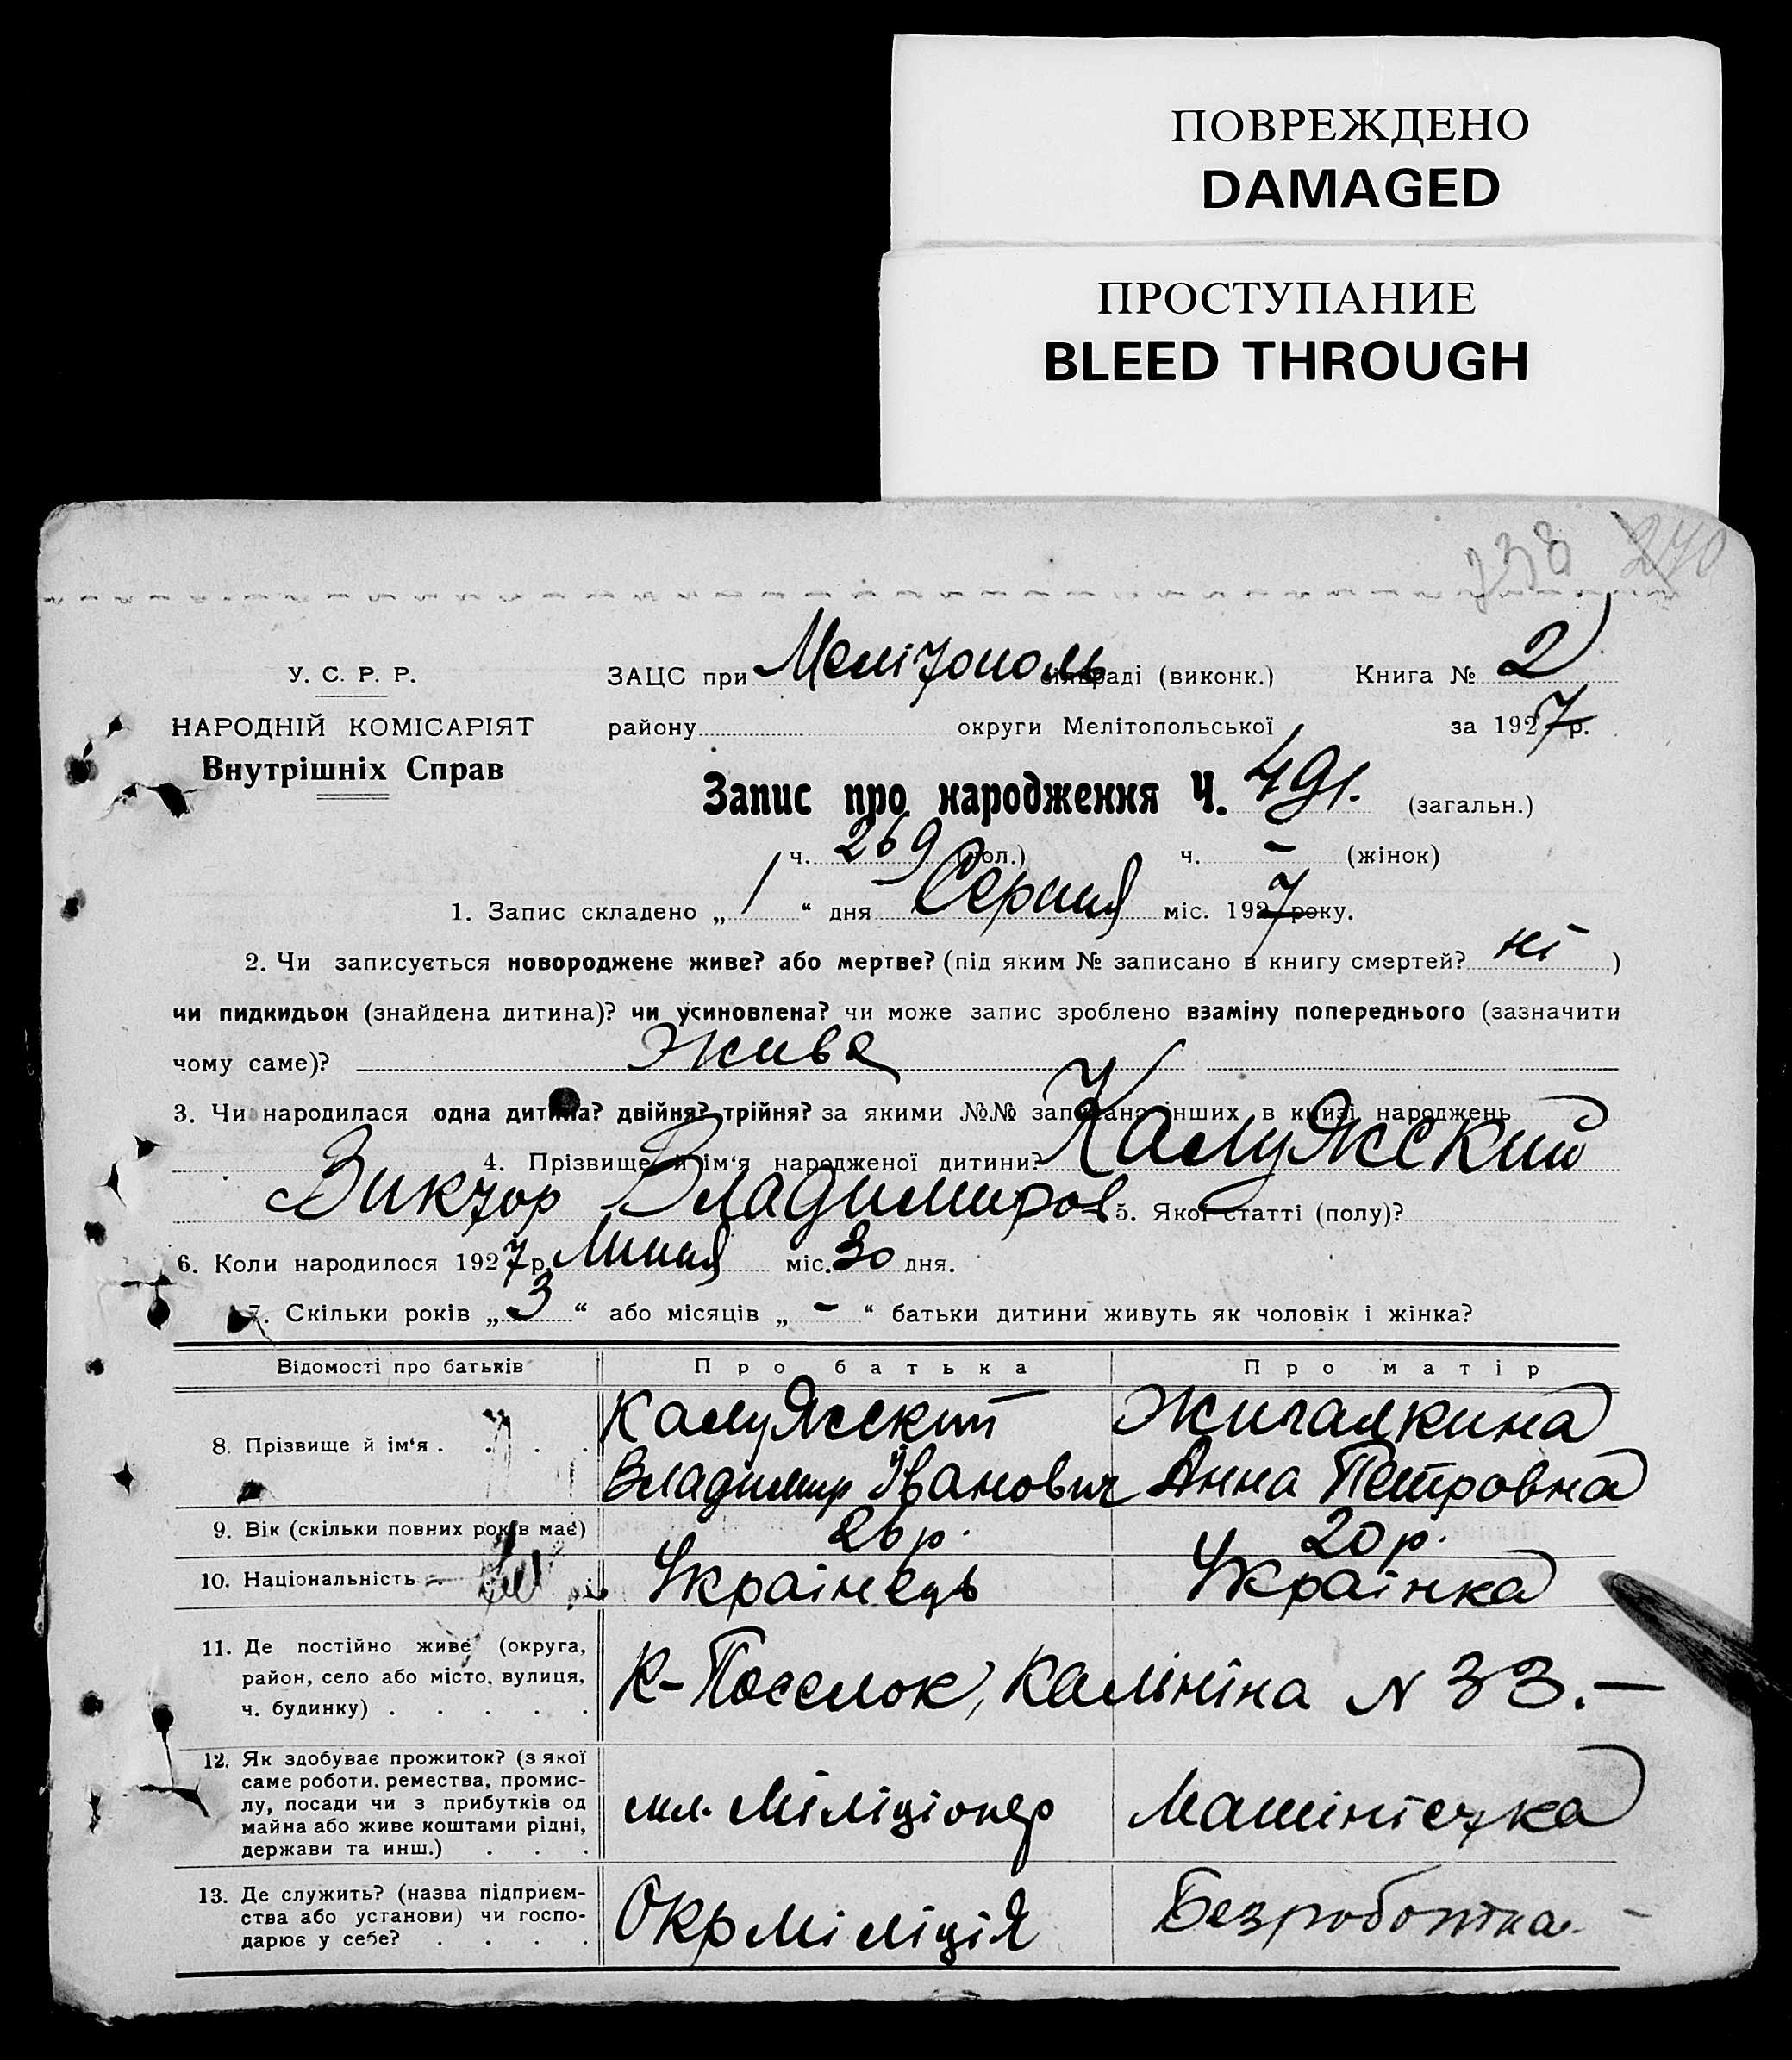 ПОВРЕЖДЕНО
DAMAGED
ПРОСТУПАНИЕ
BLEED THROUGH
238 270
У. С. Р. Р.
НАРОДНІЙ КОМІСАРІЯТ
Внутрішніх Справ
ЗАЦС при Мелітополь сільраді (виконк.) Книга № 2
району округи Мелітопольської за 1927 р.
Запис про народження Ч. 491. (загальн.)
ч. 269 (чол.) ч. - (жінок)
1. Запис складено „ 1 “ дня Серпня міс. 1927 року.
2. Чи записується новороджене живе? або мертве? (під яким № записано в книгу смертей? ні )
чи пидкидьок (знайдена дитина)? чи усиновлена? чи може запис зроблено взаміну попереднього (зазначити
чому саме)? Жива
3. Чи народилася одна дитина? двійня? трійня? за якими №№ записано інших в книзі народжень
4. Прізвище й ім‘я народженої дитини? Калужский
Виктор Владимиров 5. Якої статті (полу)?
6. Коли народилося 1927 р. Липня міс. 30 дня.
7. Скільки років „ 3 “ або місяців „ - “ батьки дитини живуть як чоловік і жінка?
Відомості про батьків Про батька Про матір
8. Прізвище й ім‘я . . . . Калужский Владимир Іванович Жигалкина Анна Петровна
9. Вік (скільки повних років має) 26 р. 20 р.
10. Національність Українець Українка
11. Де постійно живе (округа,
район, село або місто, вулиця,
ч. будинку) . . . . .
К-Поселок, Калініна N 33.—
12. Як здобуває прожиток? (з якої
саме роботи, ремества, промис-
лу, посади чи з прибутків од
майна або живе коштами рідні,
держави та инш.) . . .
мл. Міліціонер Машіністка
13. Де служить? (назва підприєм-
ства або установи) чи госпо-
дарює у себе? . . . .
Окрміліція Безработна -